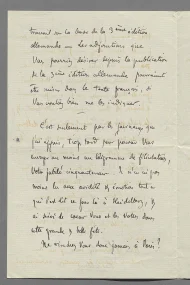 travail sur la base de la 3ème édition
allemande et les adjonctions que
Vous pourriez désirer depuis la publication
de la 3ème édition allemande pourraient
être mises dans le texte français, si
Vous vouliez bien me les indiquer.
C'est seulement par le journaux que
j'ai appris, trop tard pour pouvoir Vous
envoyer au moins un télégramme de félicitations,
Votre jubilé cinquantenaire. Je n'en ai pas
moins lu avec avidité et émotion tout ce
qui s'est dit ce jour là à Heidelberg, et
ai suivi de coeur Vous et les Vôtres dans
cette grande et belle fête.
Ne viendrez Vous donc jamais à Paris ?